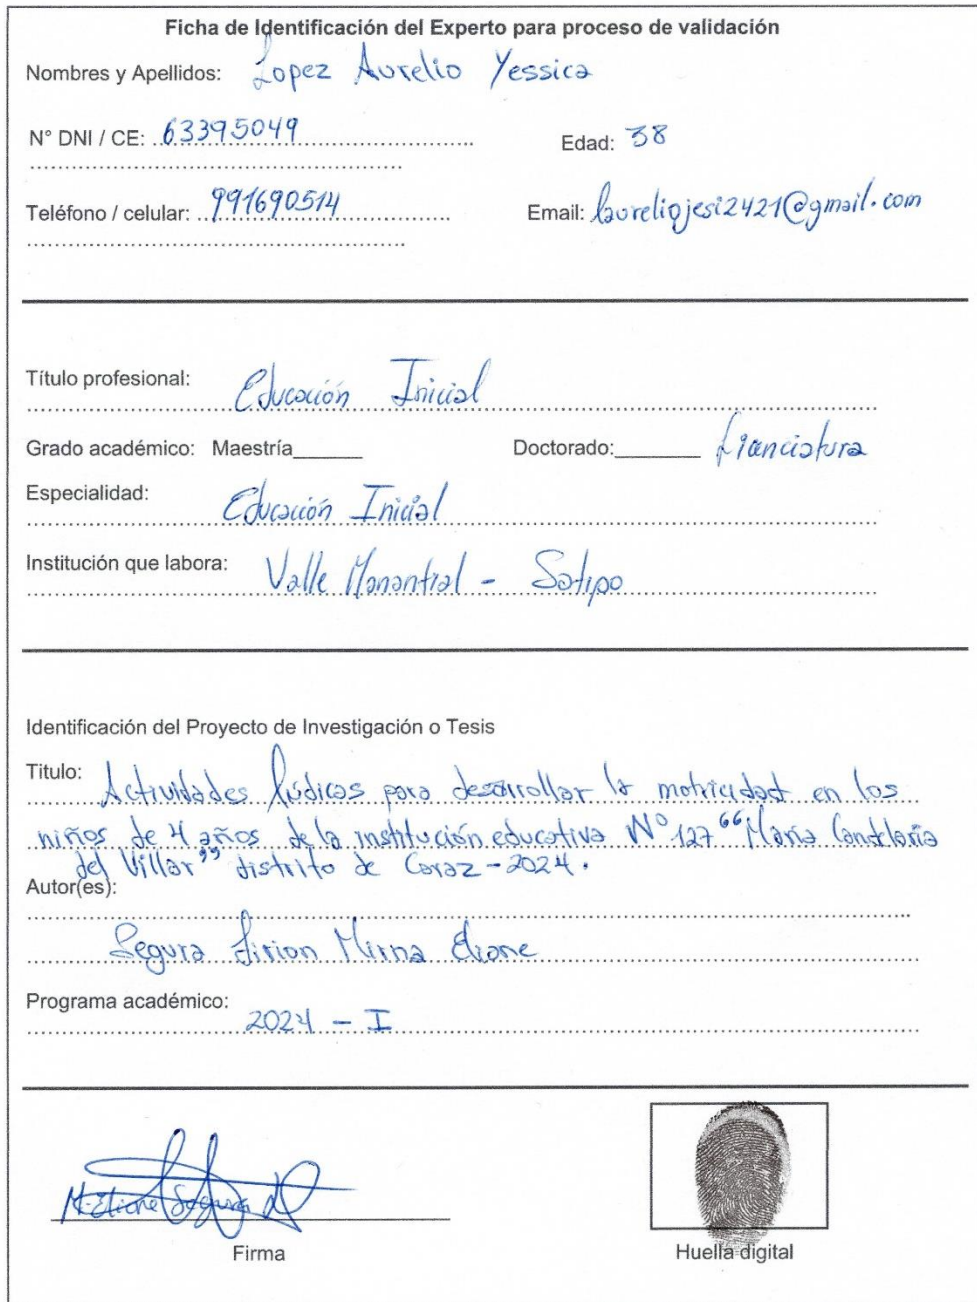 Ficha de Identificación del Experto para proceso de validación
Nombres y Apellidos: Lopez Aurelio Yessica
N° DNI / CE: 63395049 Edad: 38
Teléfono / celular: 991690514 Email: laureliojesi2421@gmail.com
Título profesional: Educación Inicial
Grado académico: Maestría______ Doctorado:________ Licanciatura
Especialidad: Educación Inicial
Institución que labora: Valle Manantial - Satipo
Identificación del Proyecto de Investigación o Tesis
Titulo: Actividades lúdicas para desarrollar la motricidad en los
niños de 4 años de la institución educativa N° 127 "María Candelaria
del Villar" distrito de Caraz-2024.
Autor(es):
Segura Mirna Eliane
Programa académico:
2024 - I
Segura
Firma Huella digital